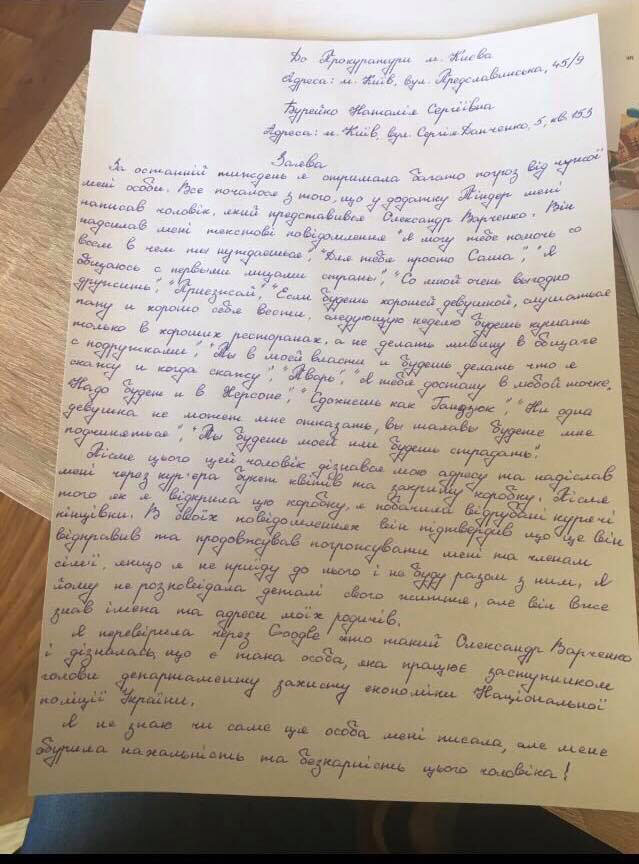 До Прокуратури м. Києва
Адреса: м. Київ, вул. Предславинська, 45/9
Бурейко Наталія Сергіївна
Адреса: м. Київ, вул. Сергія Данченко, 5, кв. 153
Заява
За останній тиждень я отримала багато погроз від чужої
мені особи. Все почалося з того, що у додатку Тіндер мені
написав чоловік, який представився Олександр Варченко. Він
надсилав мені текстові повідомлення "Я могу тебе помочь со
всем в чем ты нуждаешься", "Для тебя просто Саша", "Я
общаюсь с первыми лицами страны", "Со мной очень выгодно
дружить", "Приезжай", "Если будешь хорошей девушкой, слушаться
папу и хорошо себя вести, следующую неделю будешь кушать
только в хороших ресторанах, а не делать мивину в общаге
с подружками", "Ты в моей власти и будешь делать что я
скажу и когда скажу", "Тварь", "Я тебя достану в любой точке.
Надо будет и в Херсоне", "Сдохнешь как Гандзюк", "Ни одна
девушка не может мне отказать, вы шалавы будете мне
подчиняться", "Ты будешь моей или будешь страдать".
Після цього цей чоловік дізнався мою адресу та надіслав
мені через кур'єра букет квітів та закриту коробку. Після
того як я відкрила цю коробку, я побачила відрубані курячі
кінцівки. В своїх повідомленнях він підтвердив що це він
відправив та продовжував погрожувати мені та членам
сім'ї, якщо я не приїду до нього і не буду разом з ним. Я
йому не розповідала деталі свого життя, але він вже
знав імена та адреси моїх родичів.
Я перевірила через Google хто такий Олександр Варченко
і дізналась, що є така особа, яка працює заступником
голови департаменту захисту економіки Національної
поліції України.
Я не знаю чи саме ця особа мені писала, але мене
обурила нахальність та безкарність цього чоловіка!